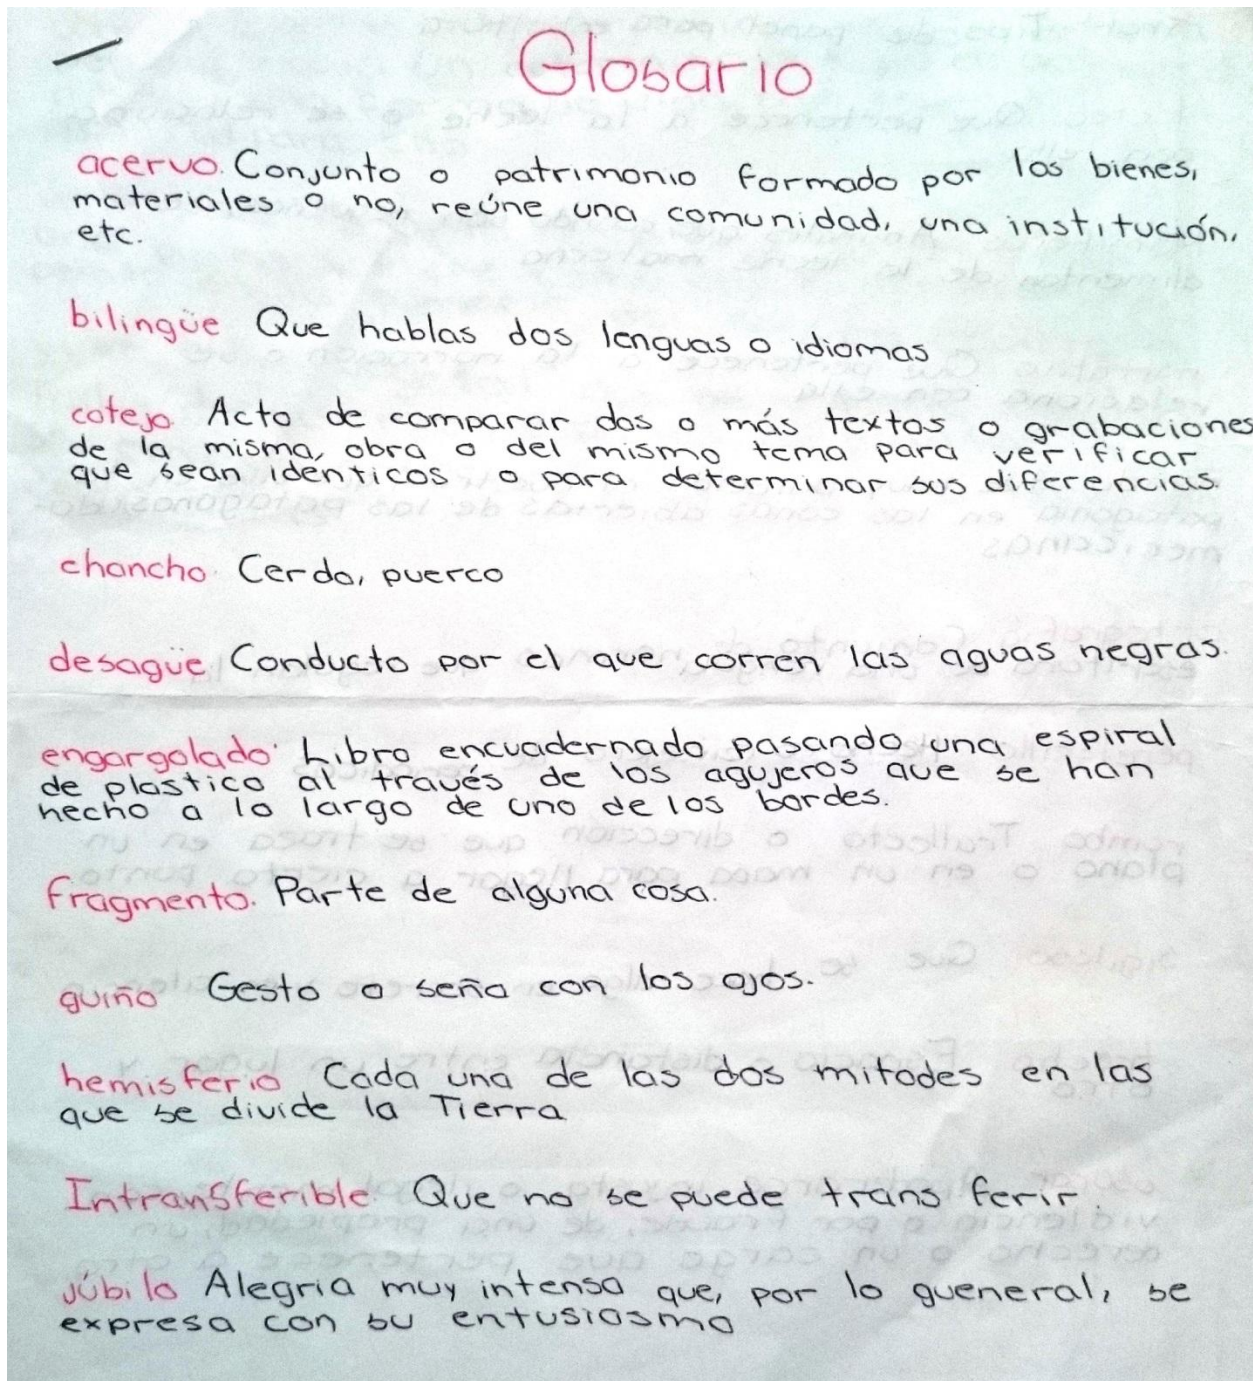 Glosario
acervo. Conjunto o patrimonio formado por los bienes,
materiales o no, reúne una comunidad, una institución,
etc.
bilingüe Que hablas dos lenguas o idiomas
cotejo. Acto de comparar dos o más textos o grabaciones
de la misma, obra o del mismo tema para verificar
que sean identicos o para determinar sus diferencias.
chancho. Cerdo, puerco
desagüe Conducto por el que corren las aguas negras.
engargolado. Libro encuadernado pasando una espiral
de plastico al través de los agujeros que se han
hecho a lo largo de uno de los bordes.
fragmento. Parte de alguna cosa.
guiño Gesto o seña con los ojos.
hemisferio Cada una de las dos mitades en las
que se divide la Tierra
Intransferible. Que no se puede trans ferir.
júbilo Alegria muy intensa que, por lo gueneral, se
expresa con su entusiasmo